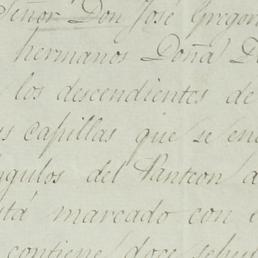 Señor Don José Gregor
hermanos Doña D
los descendientes de
s capillas que se en
gulos del Panteon a
tá marcado con e
contiene doce sepul